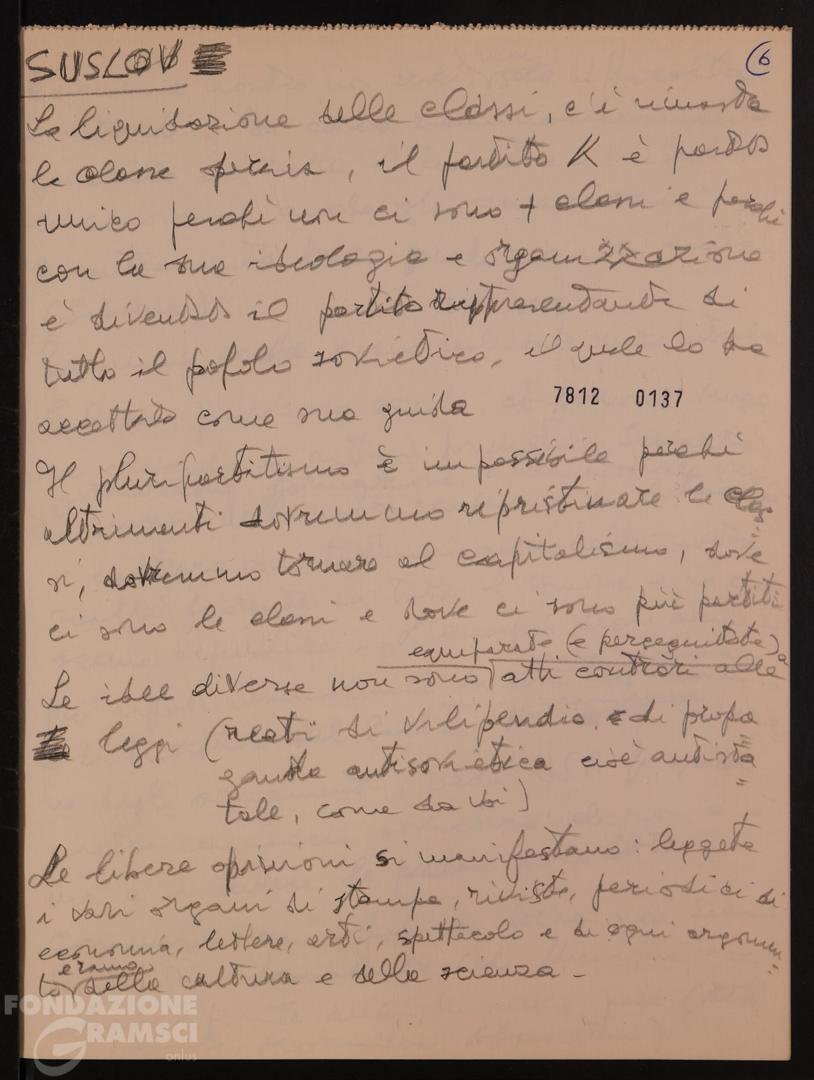 SUSLOV
6
La liquidazione delle classi, c'è rimasta
la classe operaia, il partito K è partito
unico perché non ci sono + classi e perché
con la sua ideologia e organizzazione
è diventato il partito rappresentante di
tutto il popolo sovietico, il quale lo ha
accettato come sua guida
7812 0137
Il pluripartitismo è impossibile perché
altrimenti dovremmo ripristinare le clas=
si, dovremmo tornare al capitalismo, dove
ci sono le classi e dove ci sono più partiti
equiparate (e perseguitate) a
Le idee diverse non sono atti contrari alle
leggi (reati di vilipendio e di propa=
ganda antisovietica cioè antista=
tale, come da voi)
Le libere opinioni si manifestano: leggete
i vari organi di stampa, riviste, periodici di
economia, lettere, arti, spettacolo e di ogni argomen=
to e ramo della cultura e della scienza -
FONDAZIONE
GRAMSCI
onlus